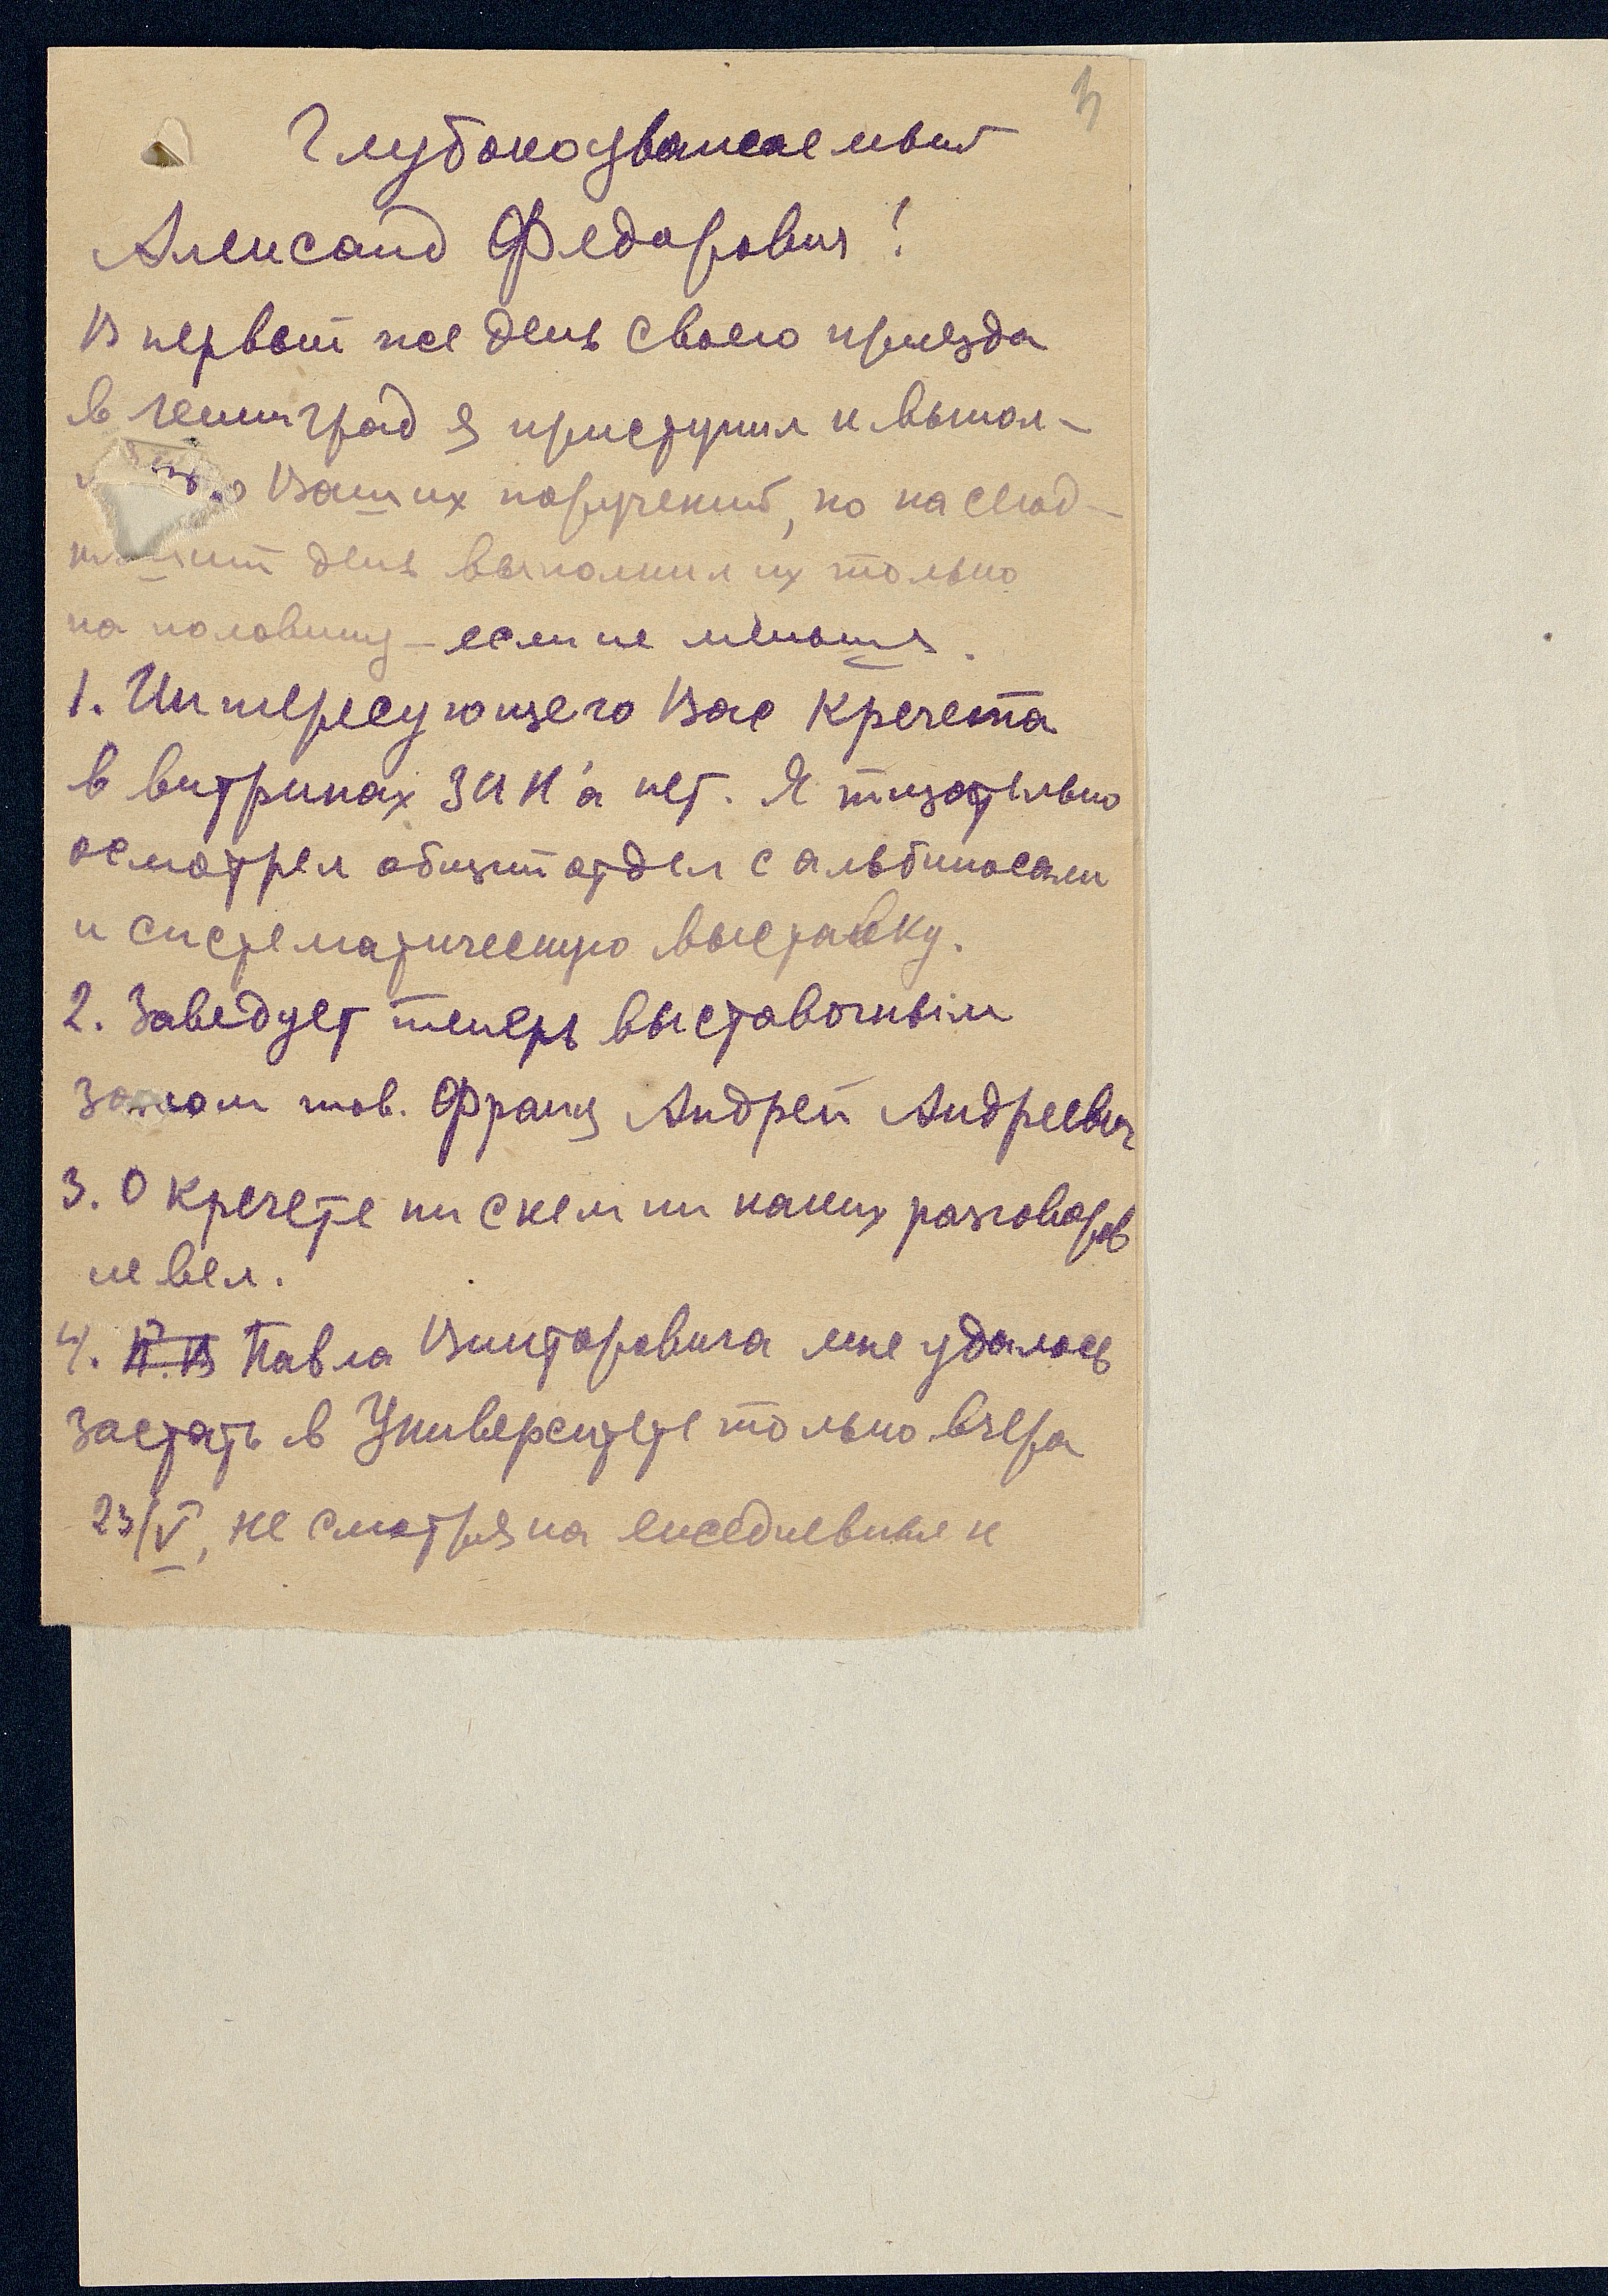 3
Глубокоуважаемый
Александ Федорович!
В первый же день своего приезда
в Ленинград я приступил к выпол-
Ваших поручений, но на сегод-
день выполнил их только
на половину – если не меньше.
1. Интересующего Вас кречета
в витринах ЗИН'а нет. Я тщательно
осмотрел общий отдел с альбиносами
и систематическую выставку.
2. Заведует теперь выставочным
залом тов. Франц Андрей Андреевич
3. О кречете ни с кем ни каких разговоров
не вел.
4. П. В Павла Викторовича мне удалось
застать в Университете только вчера
23/V, не смотря на ежедневные